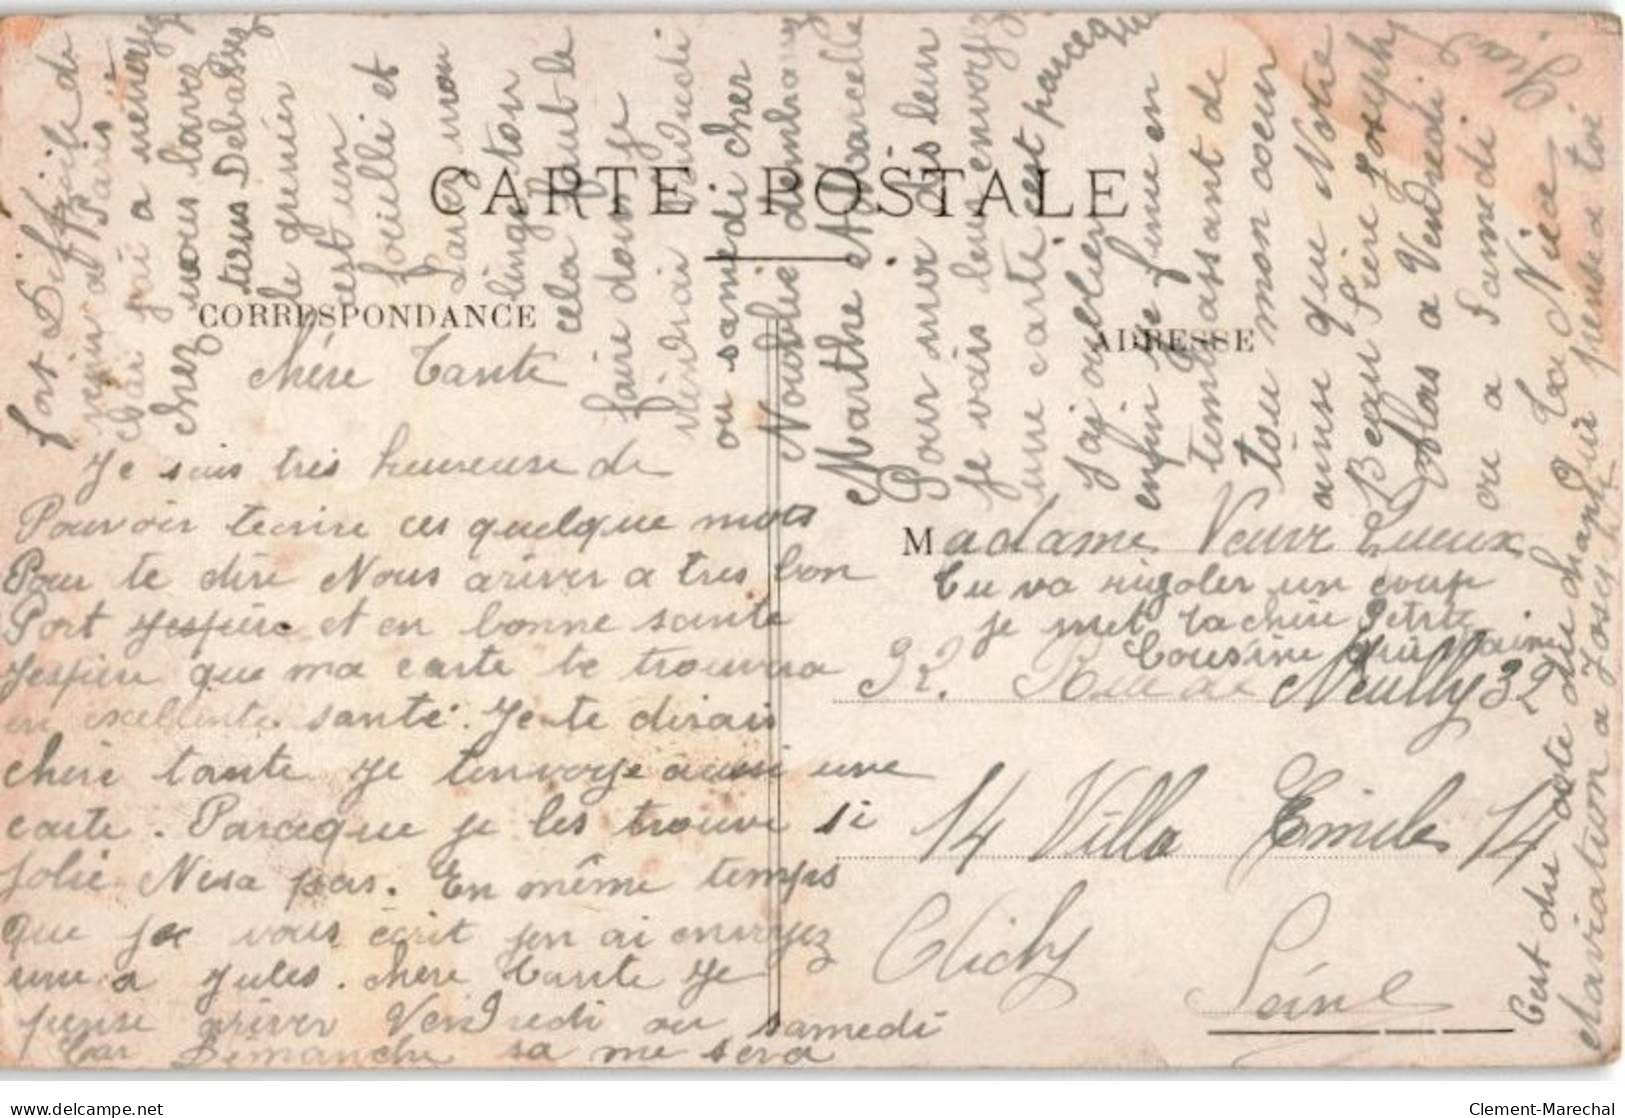 CARTE POSTALE
CORRESPONDANCE
ADRESSE
Chère Tante
Je suis très heureuse de
Pouvoir tecrire ces quelque mots
Pour te dire Nous ariver a tres bon
Port et en bonne sante
Jespère que ma carte te trouvera
en excellente santé. Je te dirais
chère tante je tenvoye aussi une
carte. Parceque je les trouve si
jolie Nesa pas. En même temps
que je vous écrit jen ai envoyez
une a Jules. chère Tante Je
pense ariver Vendredi ou samedi
Car Dimanche sa me sera
fort Difficile de
venir a Paris
Car jai a menergez
chez nous lavez
tous Debarassez
le grenier
est un
fouillé et
Lavez mon
linge ton
cela faut le
faire donc je
viendrai vendredi
ou samedi cher
Noublie d'embrassez
Marthe et Marcelle
Pour moi dis leur
Je vais leur envoyez
une carte est parceque
Jaj oublier
enfin je finie en
tembrassant de
tou mon coeur
ainsi que Notre
Beau Frère Joseph
Alos a Vendredi
ou a Samedi
Ta Niece
Madame Veuve Queux
Tu va rigoler un coup
je met ta chère Petite
Cousine Germaine
32. Rue de Neuilly 32
14 Villa Emile 14
Clichy
Seine
Cest du coté du champ
daviation a Joseph pense a toi
Clement-Marechal